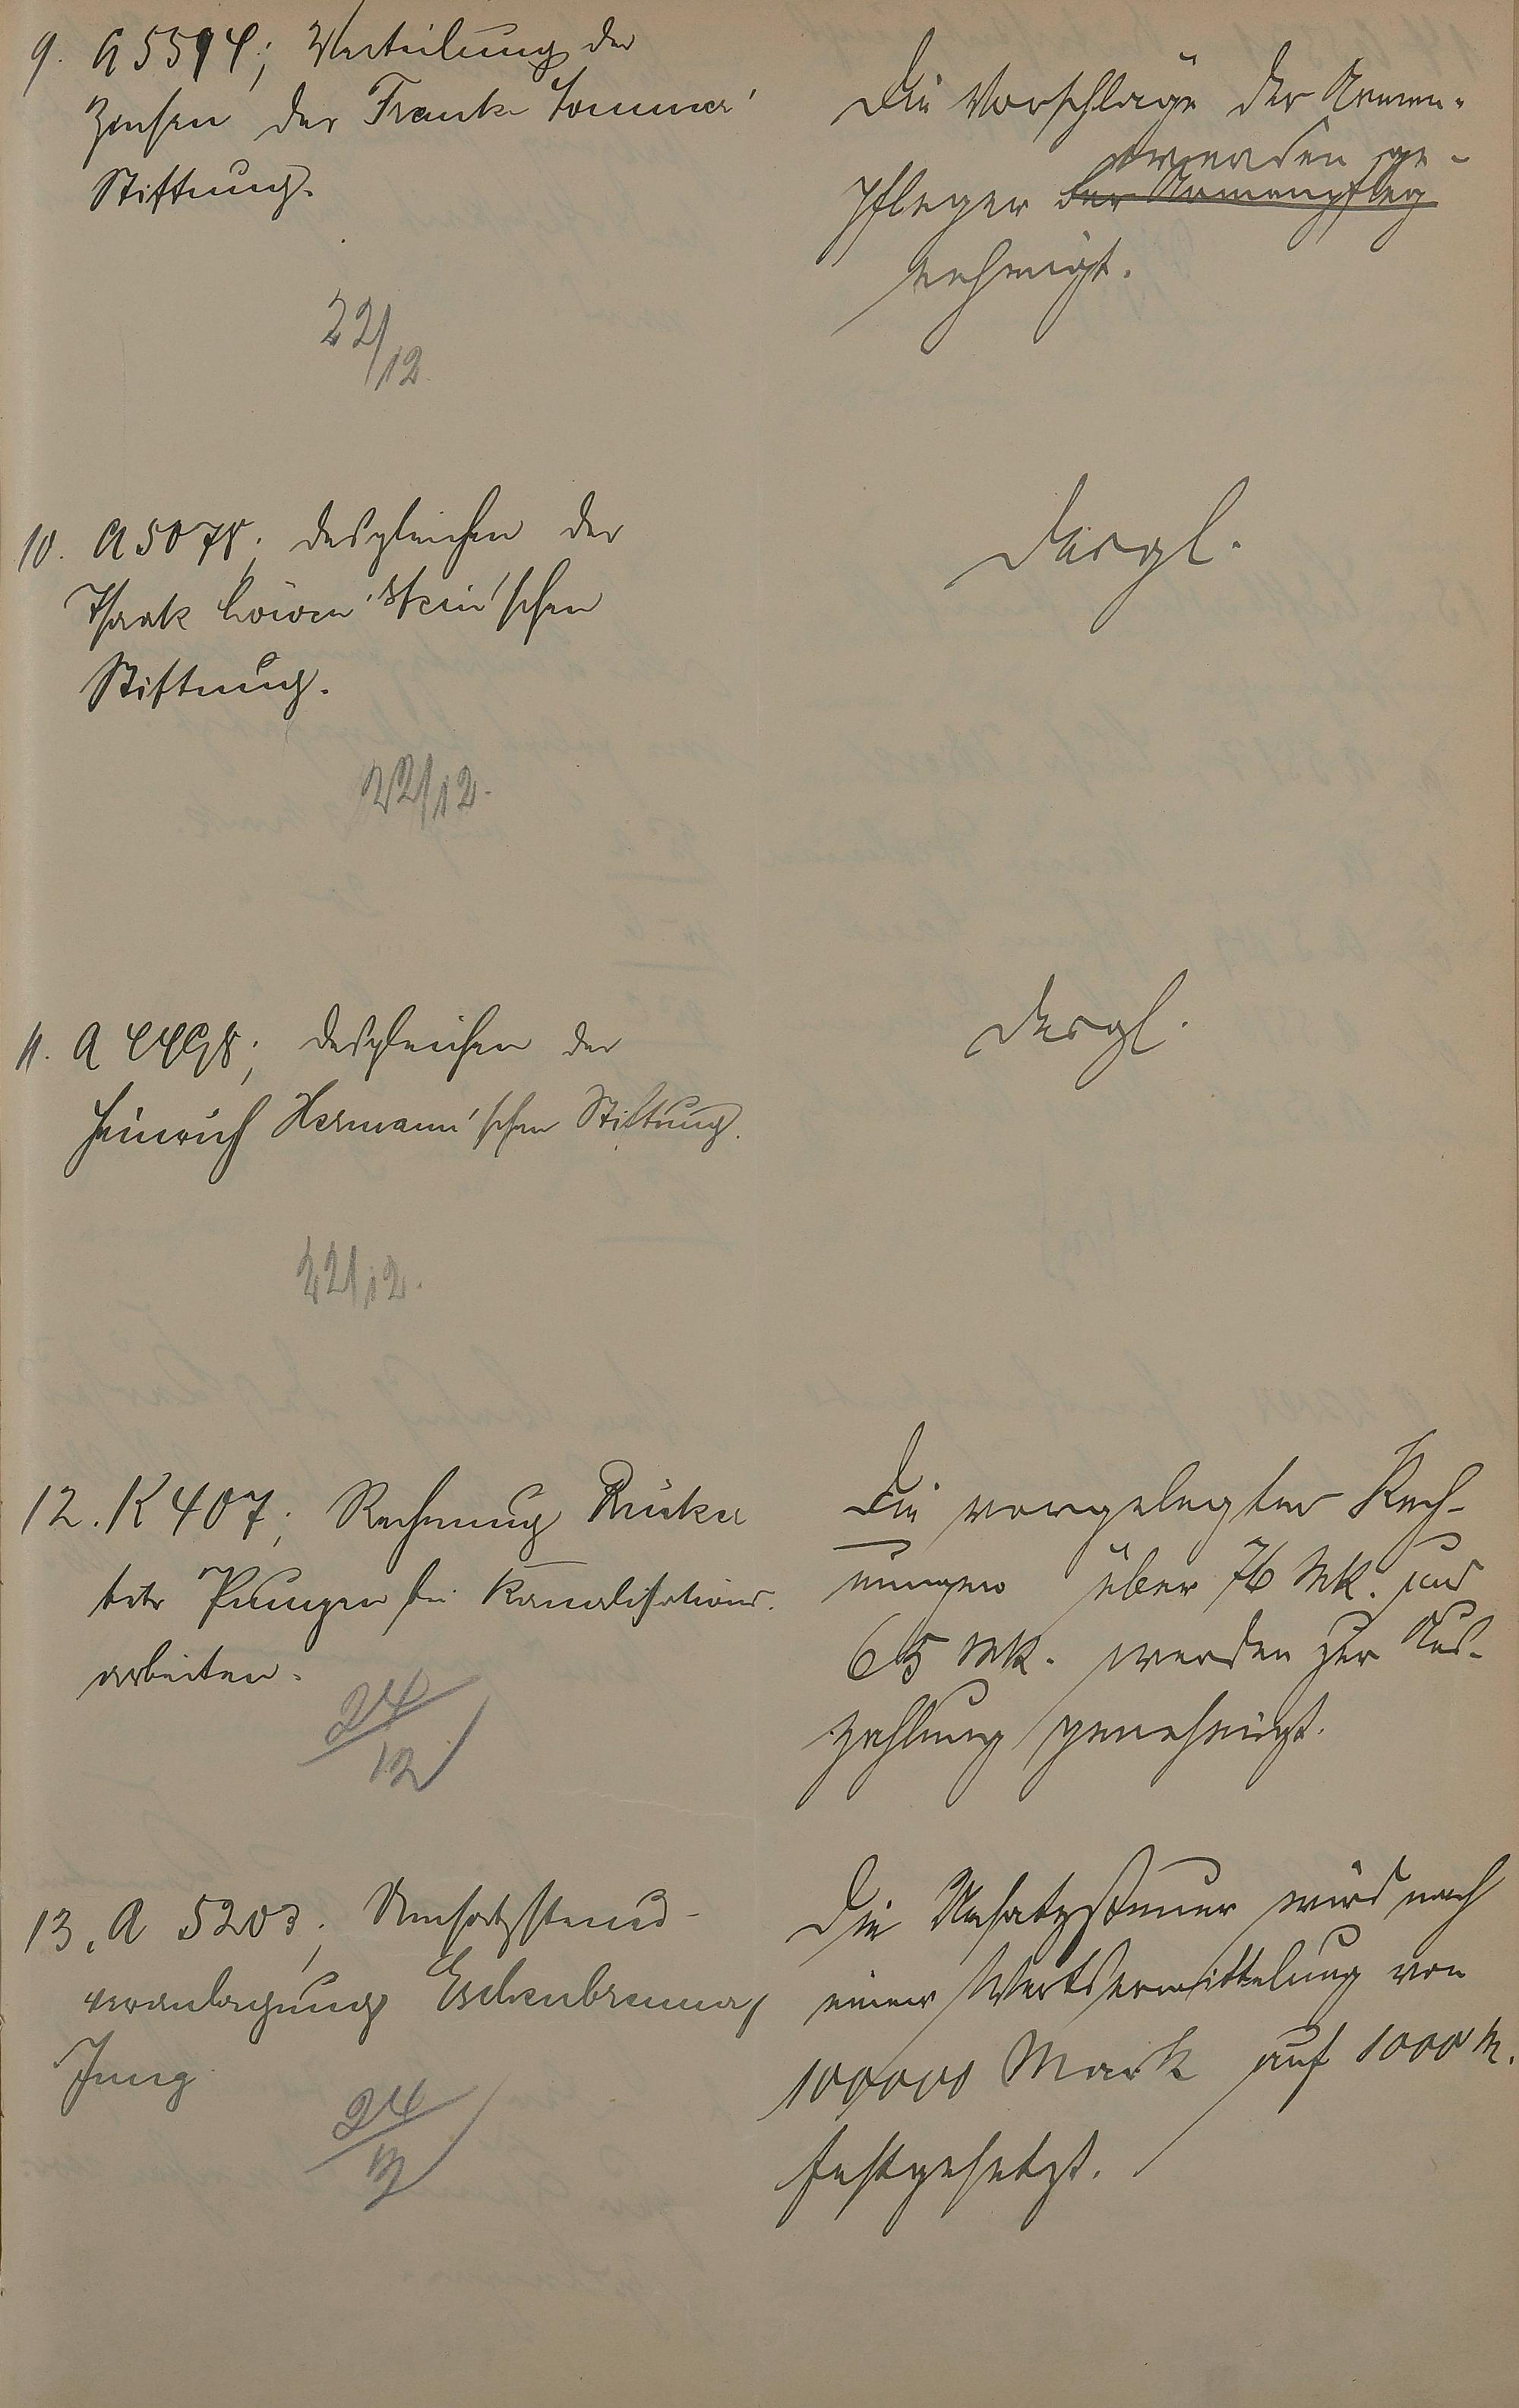 9. A 5594; Verteilung der
Zinsen der Frank Sommer'
Stiftung.
22/12.
Die Vorschläge der Armen-
werden ge-
pfleger der Armenpfleg
nehmigt.
10. A 5078; desgleichen der
Isaak Löwenstein'schen
Stiftung.
22/12.
Desgl.
11. A 4498; desgleichen der
Heinrich Hermann'schen Stiftung.
22/12.
Desgl.
12. K 407; Rechnung
für Kanalisations-
arbeiten.
24/12
Die vorgelegten Rech-
nungen über 76 Mk. und
65 Mk. werden zur Aus-
zahlung genehmigt.
13. A 5203; Umsatzsteuer-
veranlagung Eschenbrenner,
Jung
24/12
Die Umsatzsteuer wird nach
einer Wertsermittelung von
100000 Mark auf 1000 M.
festgesetzt.